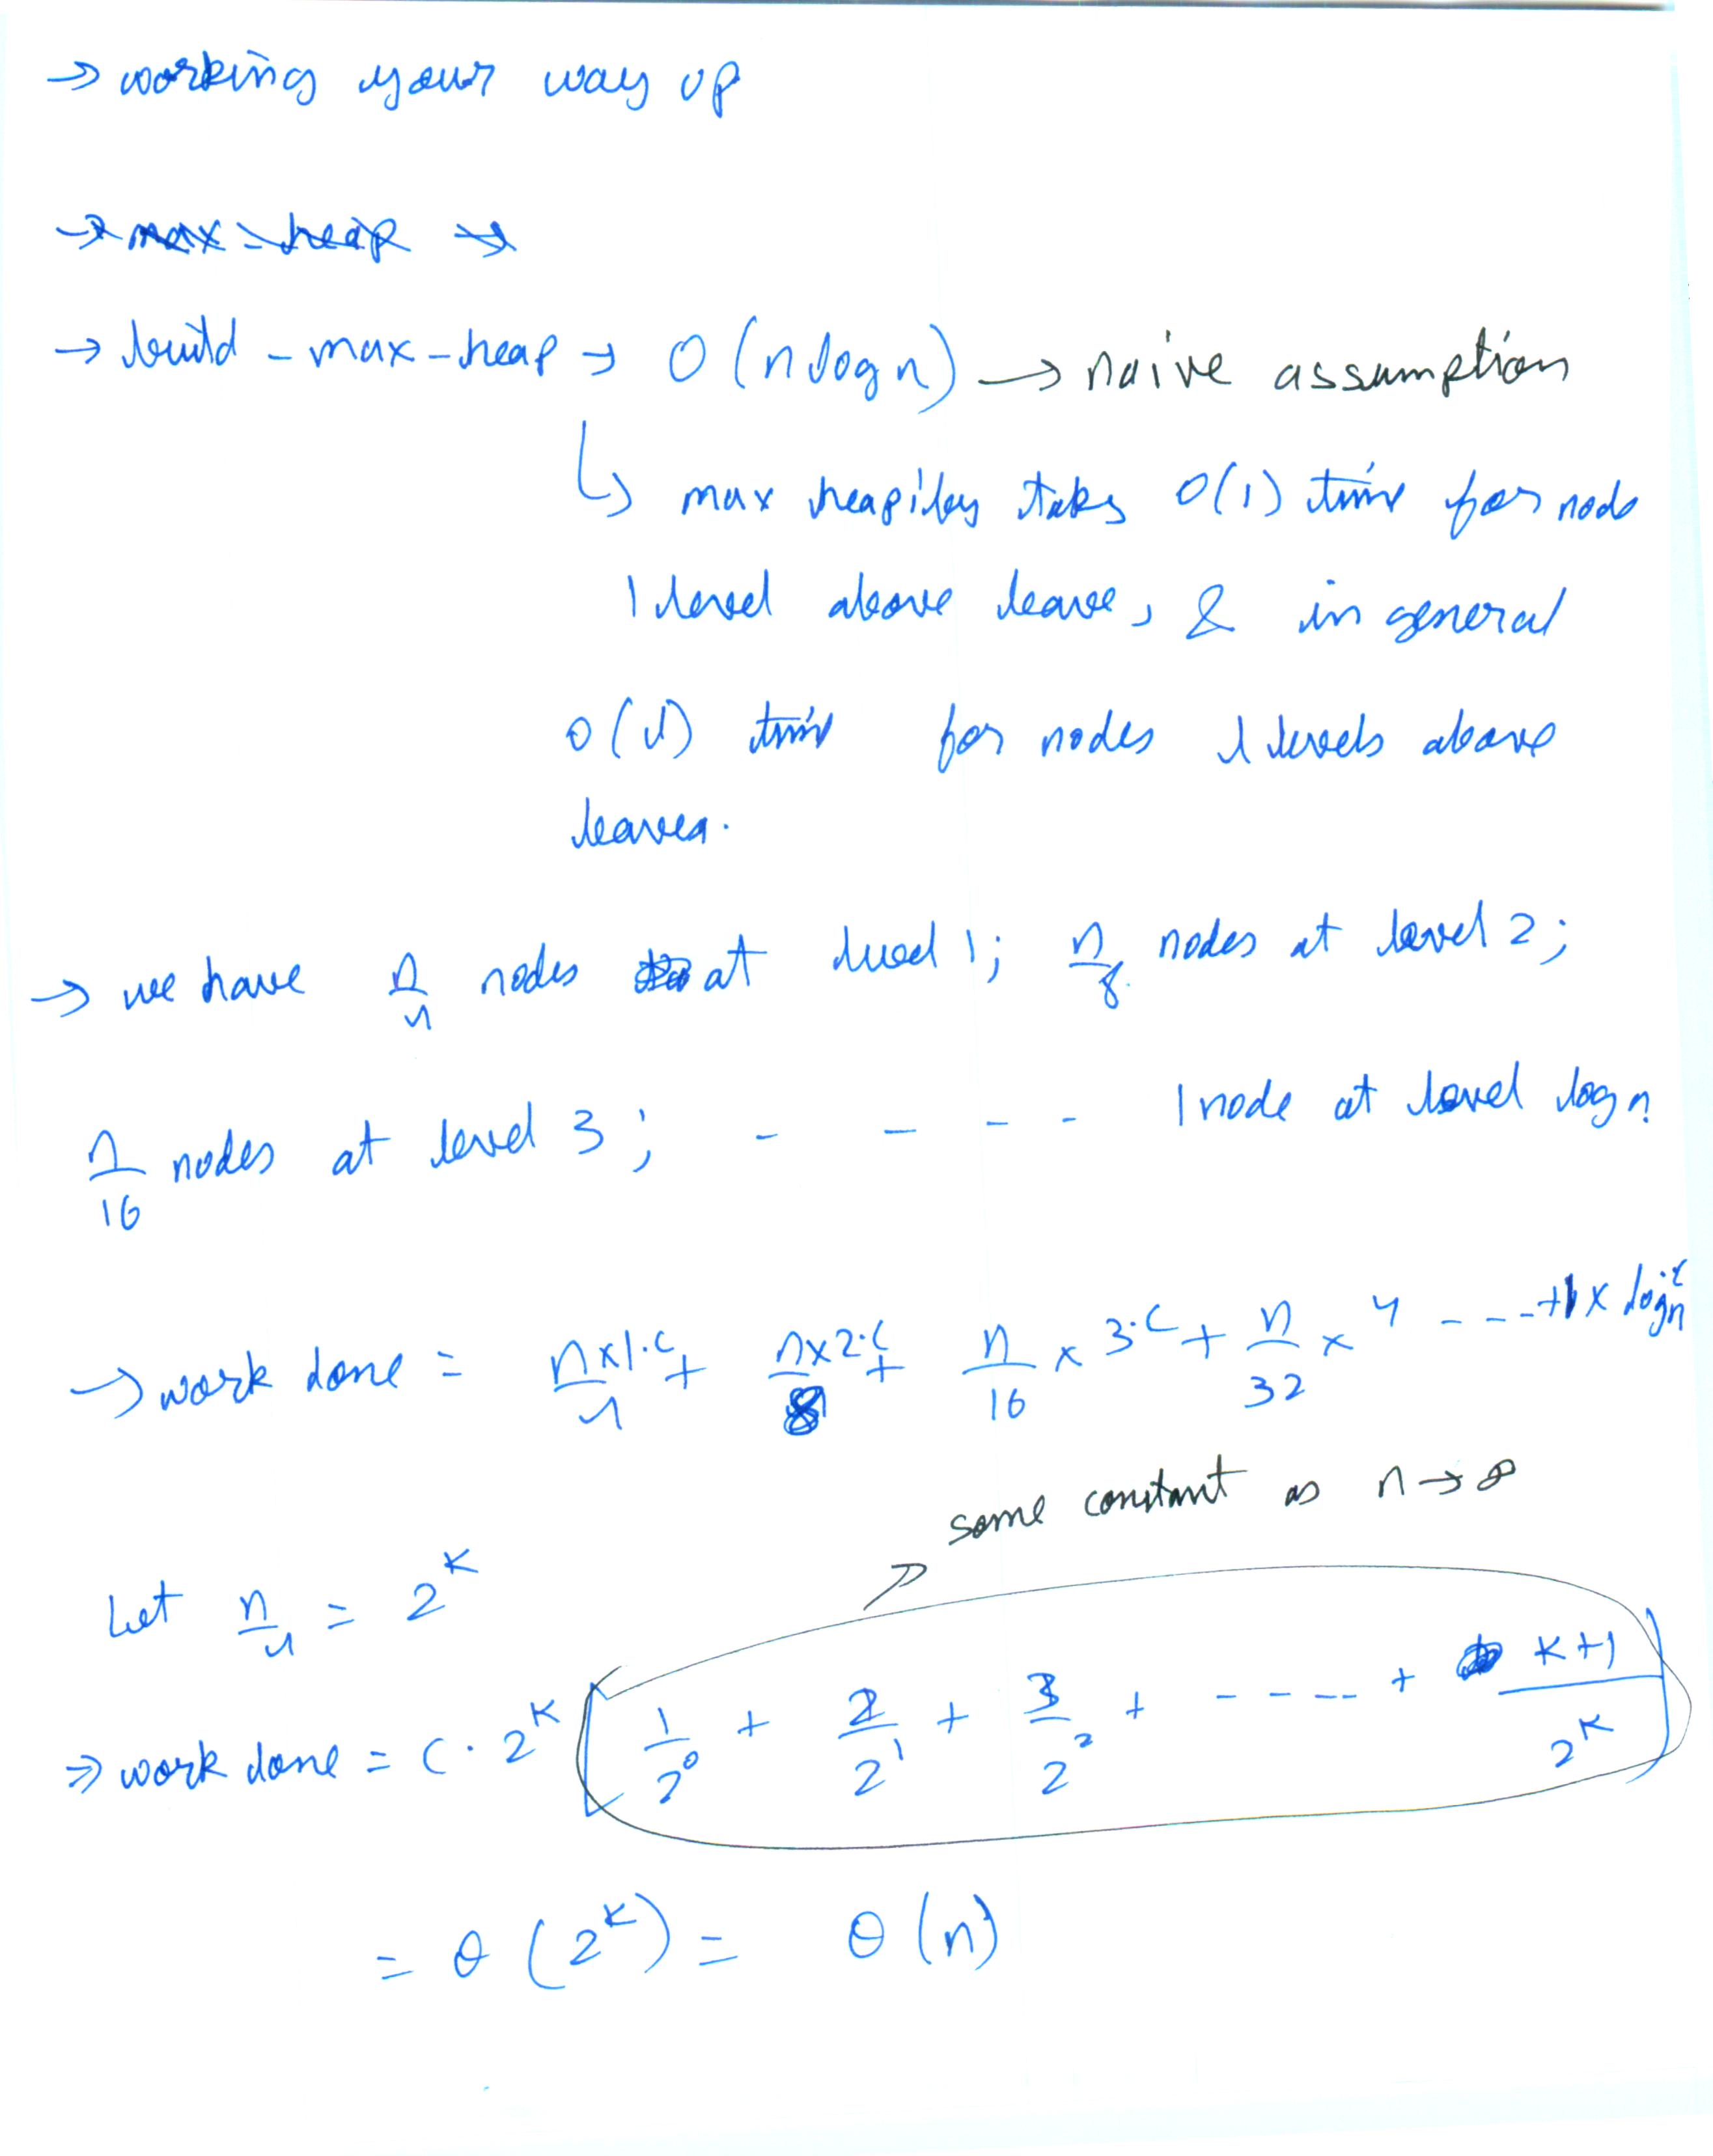 → working your way up
→ max-heap →
→ build-max-heap → O(n log n) → naive assumption
↳ max heapify takes O(1) time for node
1 level above leaves, & in general
O(l) time for nodes l levels above
leaves.
→ we have n/4 nodes at level 1; n/8 nodes at level 2;
n/16 nodes at level 3; - - - - 1 node at level log n
→ work done = n/4 × 1·c + n/8 × 2·c + n/16 × 3·c + n/32 × 4 - - - - + 1 × log n·c
some constant as n → ∞
Let n/4 = 2^k
⇒ work done = c · 2^k [ 1/2^0 + 2/2^1 + 3/2^2 + - - - - - + k+1/2^k ]
= θ(2^k) = θ(n)